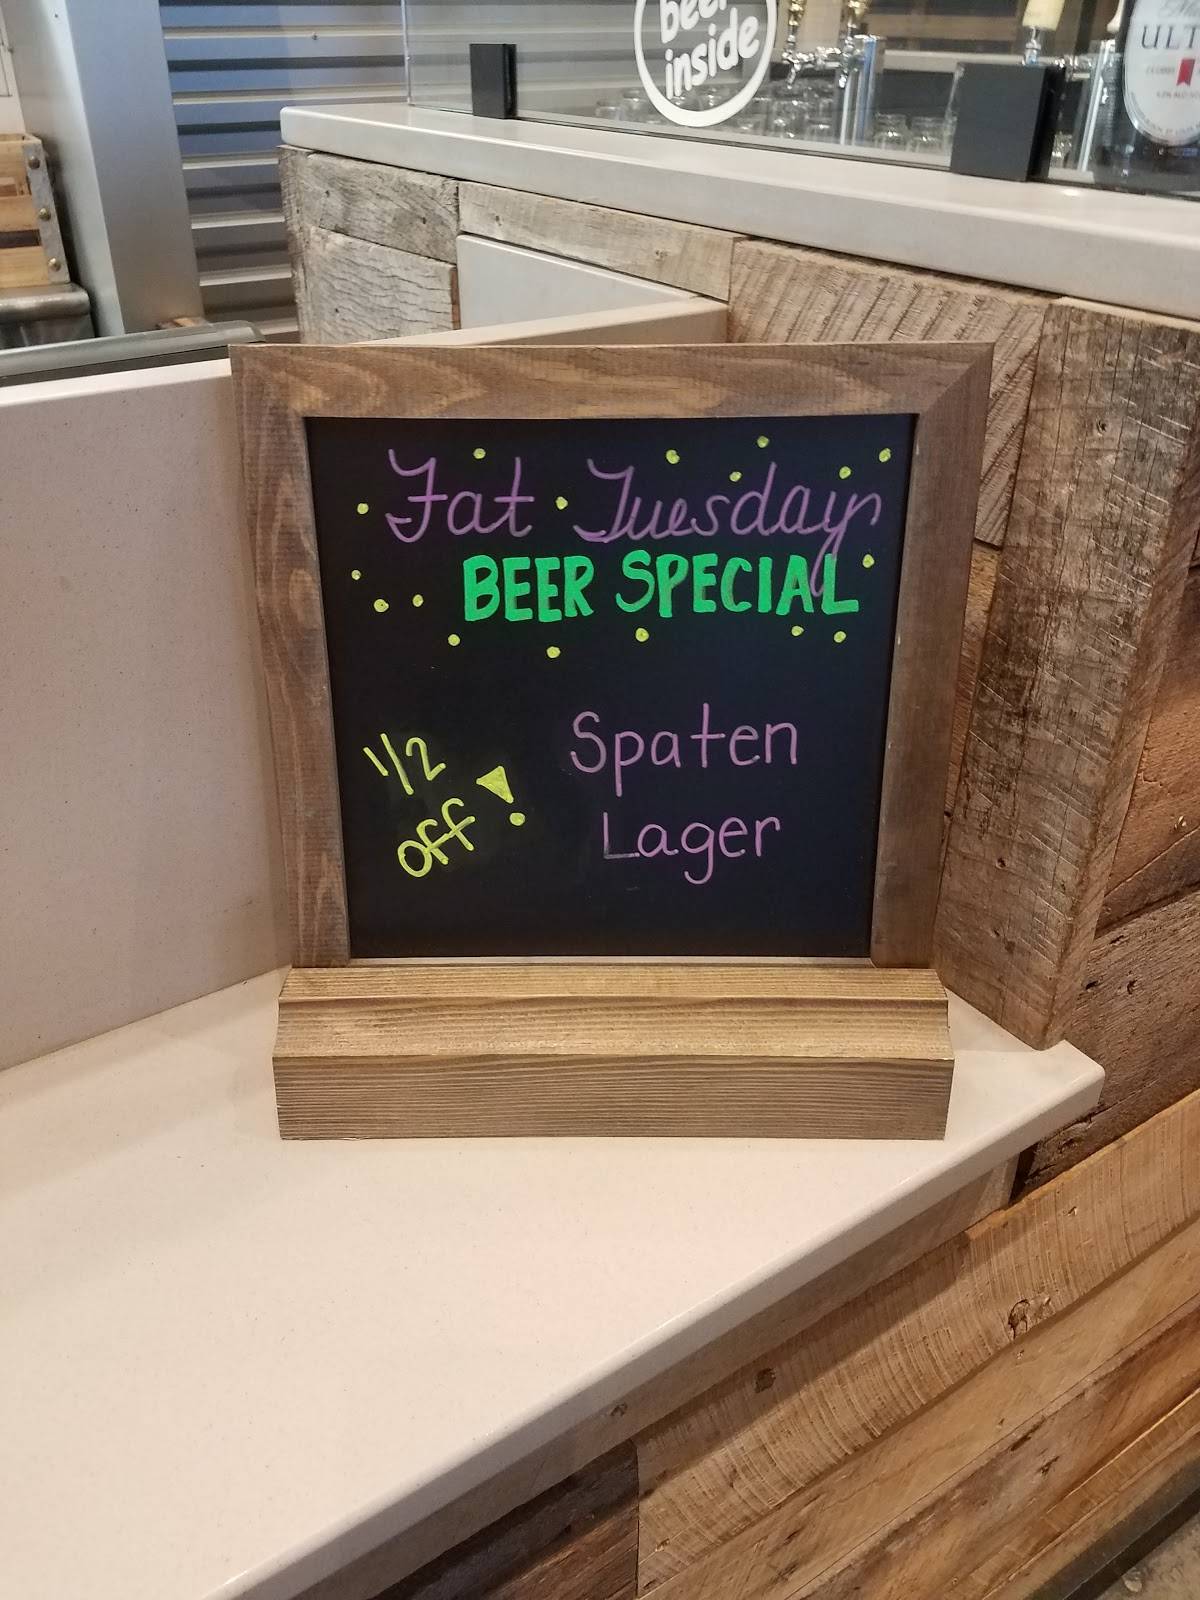 beer
inside
ULT
Fat Tuesday
BEER SPECIAL
1/2
off!
Spaten
Lager